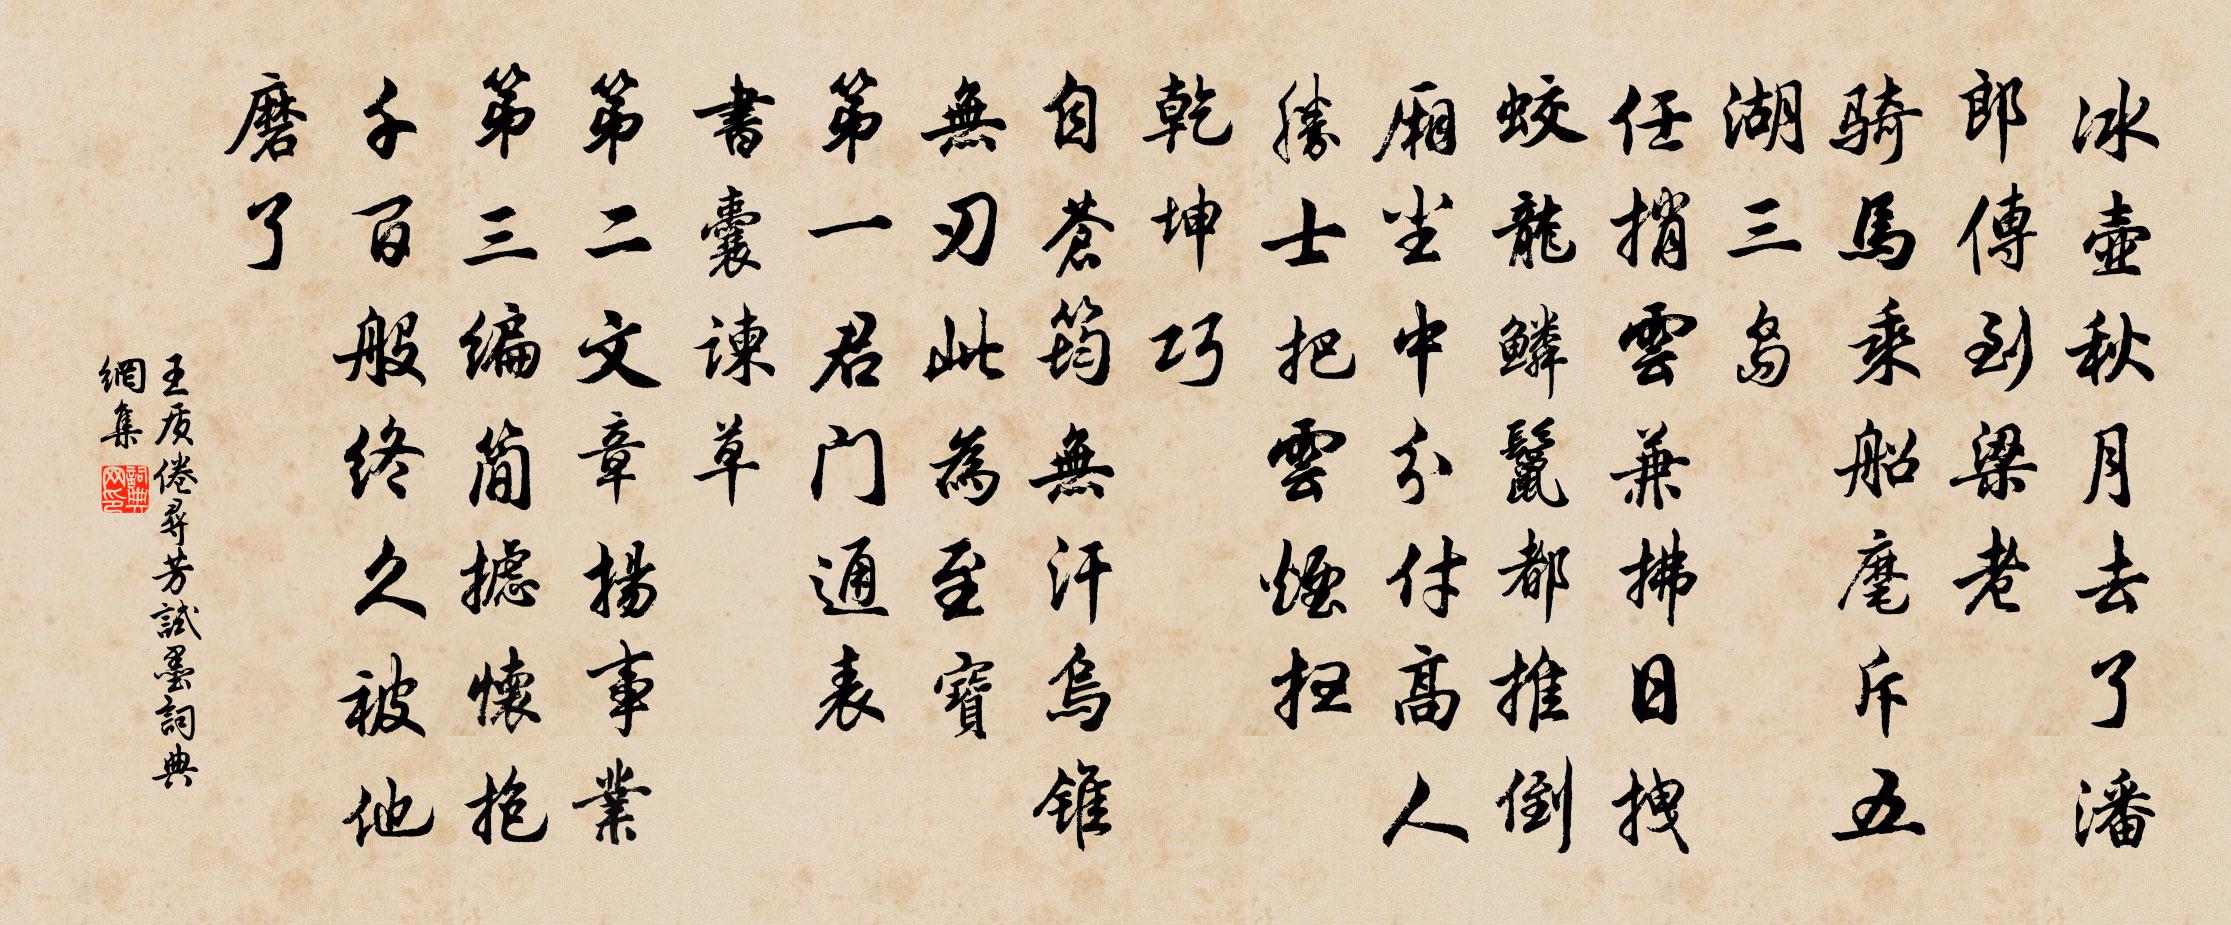 冰壺秋月去了潘
郎傳到梁老
騎馬乘船麾斥五
湖三島
任捎雲兼拂日拽
蛟龍鱗鬣都推倒
廂坐中中分付高人
勝士把雲煙掃
乾坤巧
自蒼筠無汗烏錐
無刃此為至寶
第一君门通表
書囊諫草
第二文章揚事業
第三編简攄懷抱
千百般终久被他
磨了
王质倦尋芳試墨詞典
網集
詞典
网印